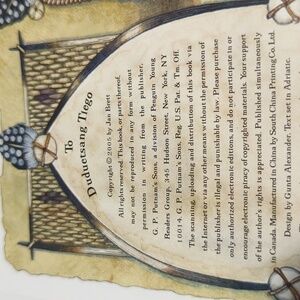 To
Duduetsang Tlego
Copyright © 2005 by Jan Brett
All rights reserved. This book, or parts thereof,
may not be reproduced in any form without
permission in writing from the publisher,
G. P. Putnam's Sons, a division of Penguin Young
Readers Group, 345 Hudson Street, New York, NY
10014. G. P. Putnam's Sons, Reg. U.S. Pat. & Tm. Off.
The scanning, uploading and distribution of this book via
the Internet or via any other means without the permission of
the publisher is illegal and punishable by law. Please purchase
only authorized electronic editions, and do not participate in or
encourage electronic piracy of copyrighted materials. Your support
of the author's rights is appreciated. Published simultaneously
in Canada. Manufactured in China by South China Printing Co. Ltd.
Design by Gunta Alexander. Text set in Adriatic.